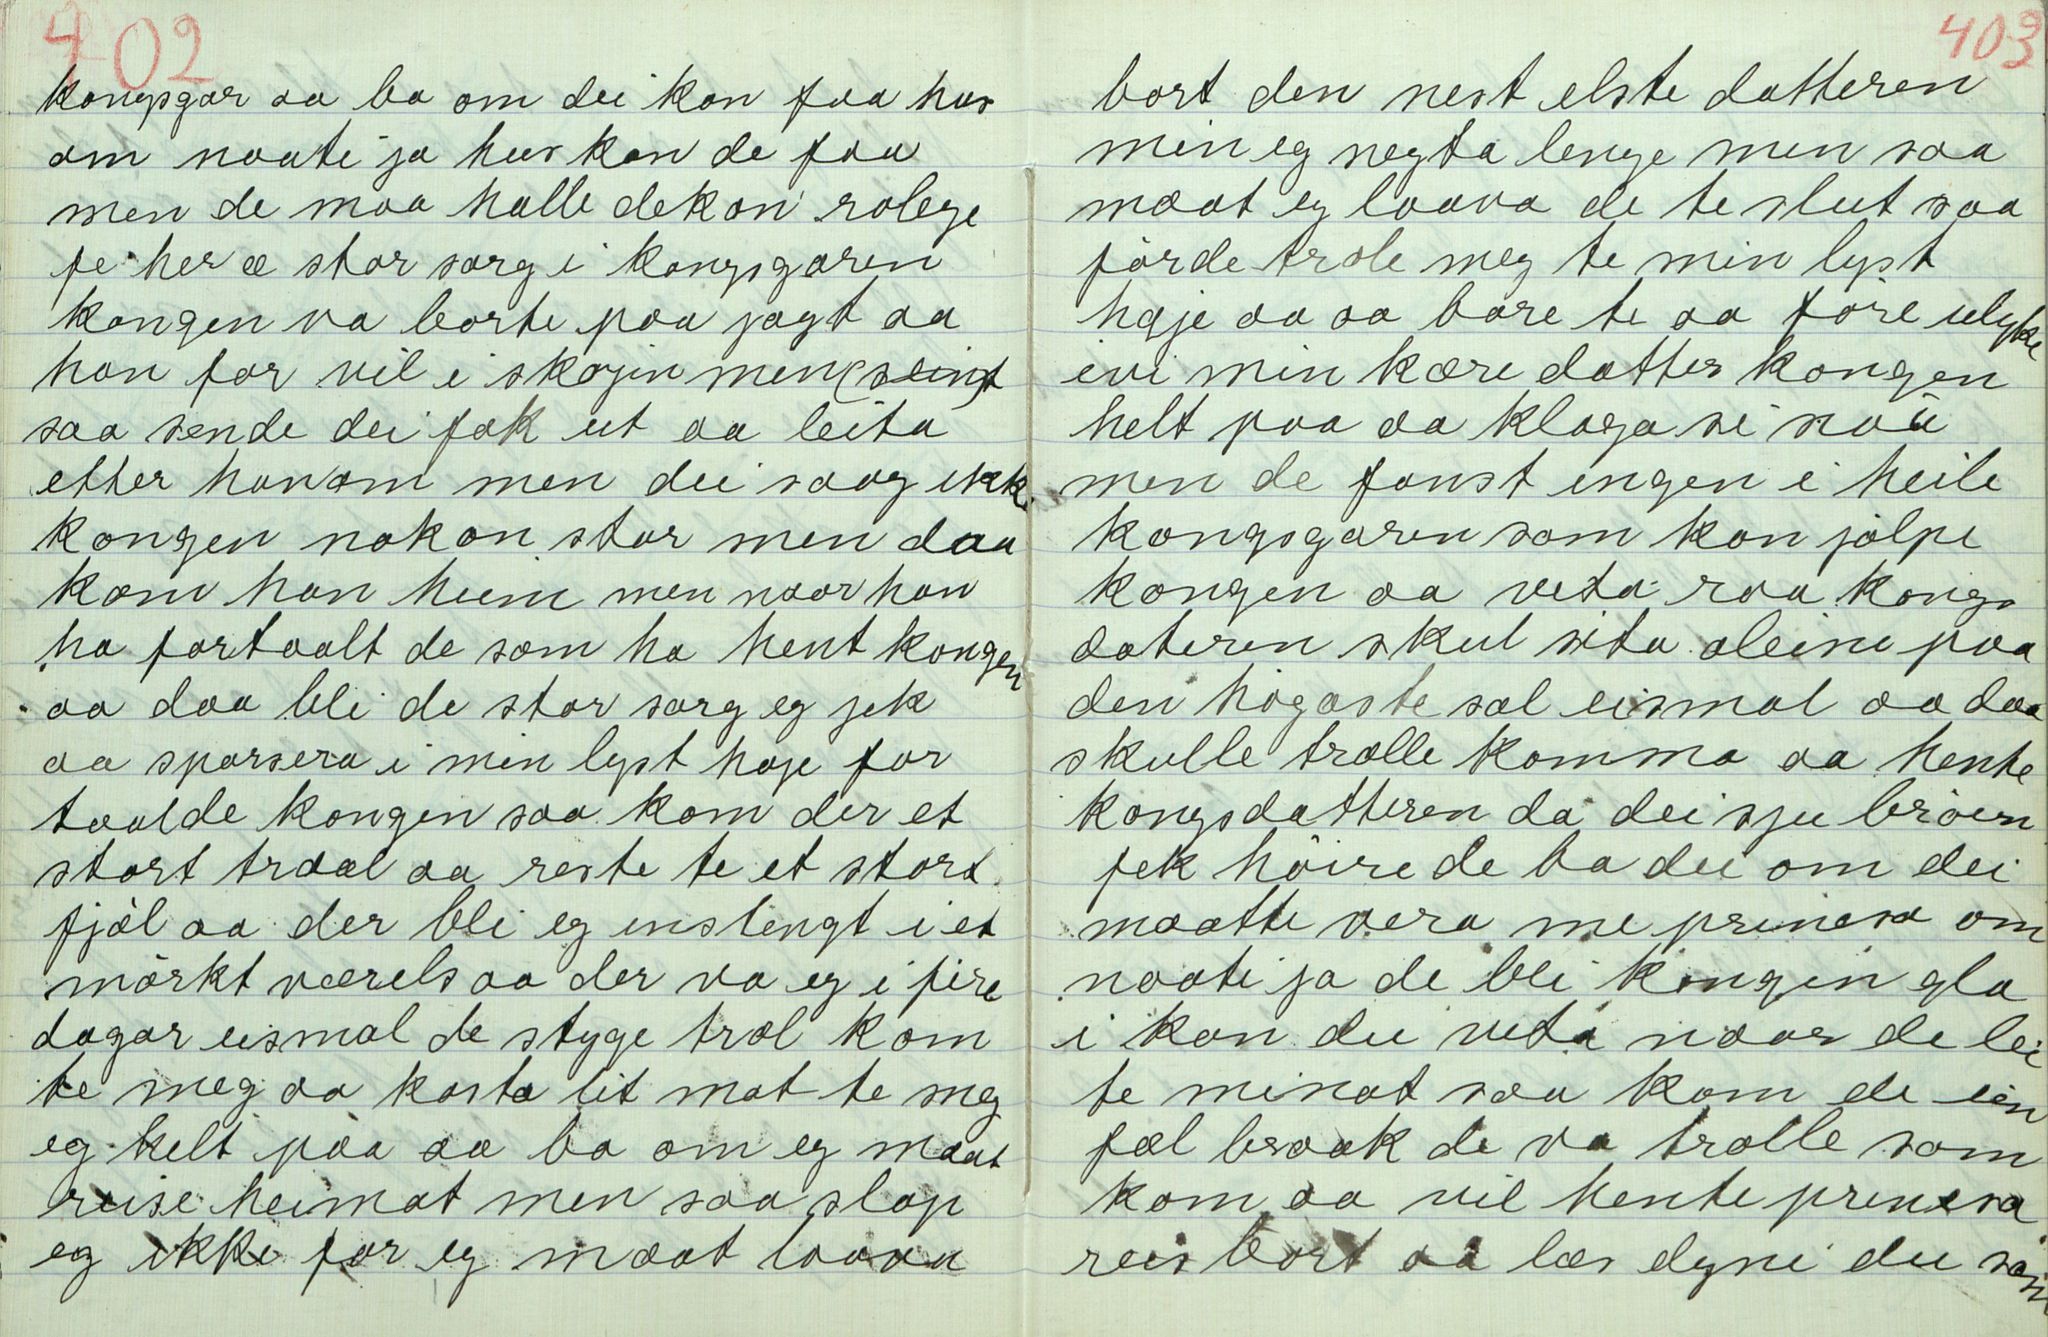 402
kongsgar aa ba om dei kan faa hus
om naate ja hus kan de faa
men de maa halle dekan rolege
fe her æ stor sorg i kongsgaren
kongen va borte paa jagt aa
han for vil i skogin men (seint
saa sende dei fok ut aa leita
etter honom men dei saag ikke
kongen nokon star men daa
kom han heim men naar han
ha fortaalt de som ha hent kongen
aa daa blei de stor sorg eg jek
aa sparsera i min lyst hage for
taalde kongen saa kom der et
stort traal aa reste te et stort
fjøl aa der blei eg inslengt i et
mørkt værels aa der va eg i fire
dagar eismal de styge trol kom
te meg aa kasta lit mat te meg
eg helt paa aa ba om eg maat
reise heimat men saa slap
eg ikke for eg maat laava
403
bort den nest elste datteren
min eg negta lenge men saa
maat eg laava de te slut saa
førde trole meg te min lyst
haje aa aa bare te aa føre ulyke
ivi min kære datter kongen
helt paa aa klaga si nøu
men de fanst ingen i heile
kongsgaren som kan jølpe
kongen aa veta raa kongs
dateren skul sita aleine paa
den høgaste sal eismal aa daa
skulle trolle komma aa hente
kongsdatteren da dei sju brøern
fek høire de ba dei om dei
maatte vera me prinesa om
naate ja de blei kongen gla
i kan du veta naar de lei
te minat saa kom de ein
fæl braak de va trolle som
kom aa vil hente prinesa
reis bort aa læs dyni du